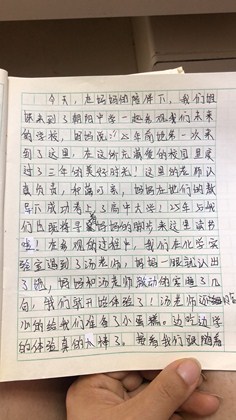 今天，在妈妈的陪伴下，我们姐
妹来到了朝阳中学一起参观我们未来
的学校，妈妈说：25年前她第一次来
到了这里，在这所充满爱的校园里度
过了三年的美好时光！这里的老师认
真负责，和蔼可亲，妈妈在他们的教
导下成功考上了高中大学！25年后我
们也即将带着妈妈的期盼来这里读书
啦！在参观的过程中，我们在化学实
验室遇到了汤老师，妈妈一眼就认出
了她，妈妈和汤老师激动的寒暄了几
句，我们就开始体验了！汤老师还
小的给我们准备了小蛋糕。边吃边学
的体验真的太棒了。接着我们跟随着